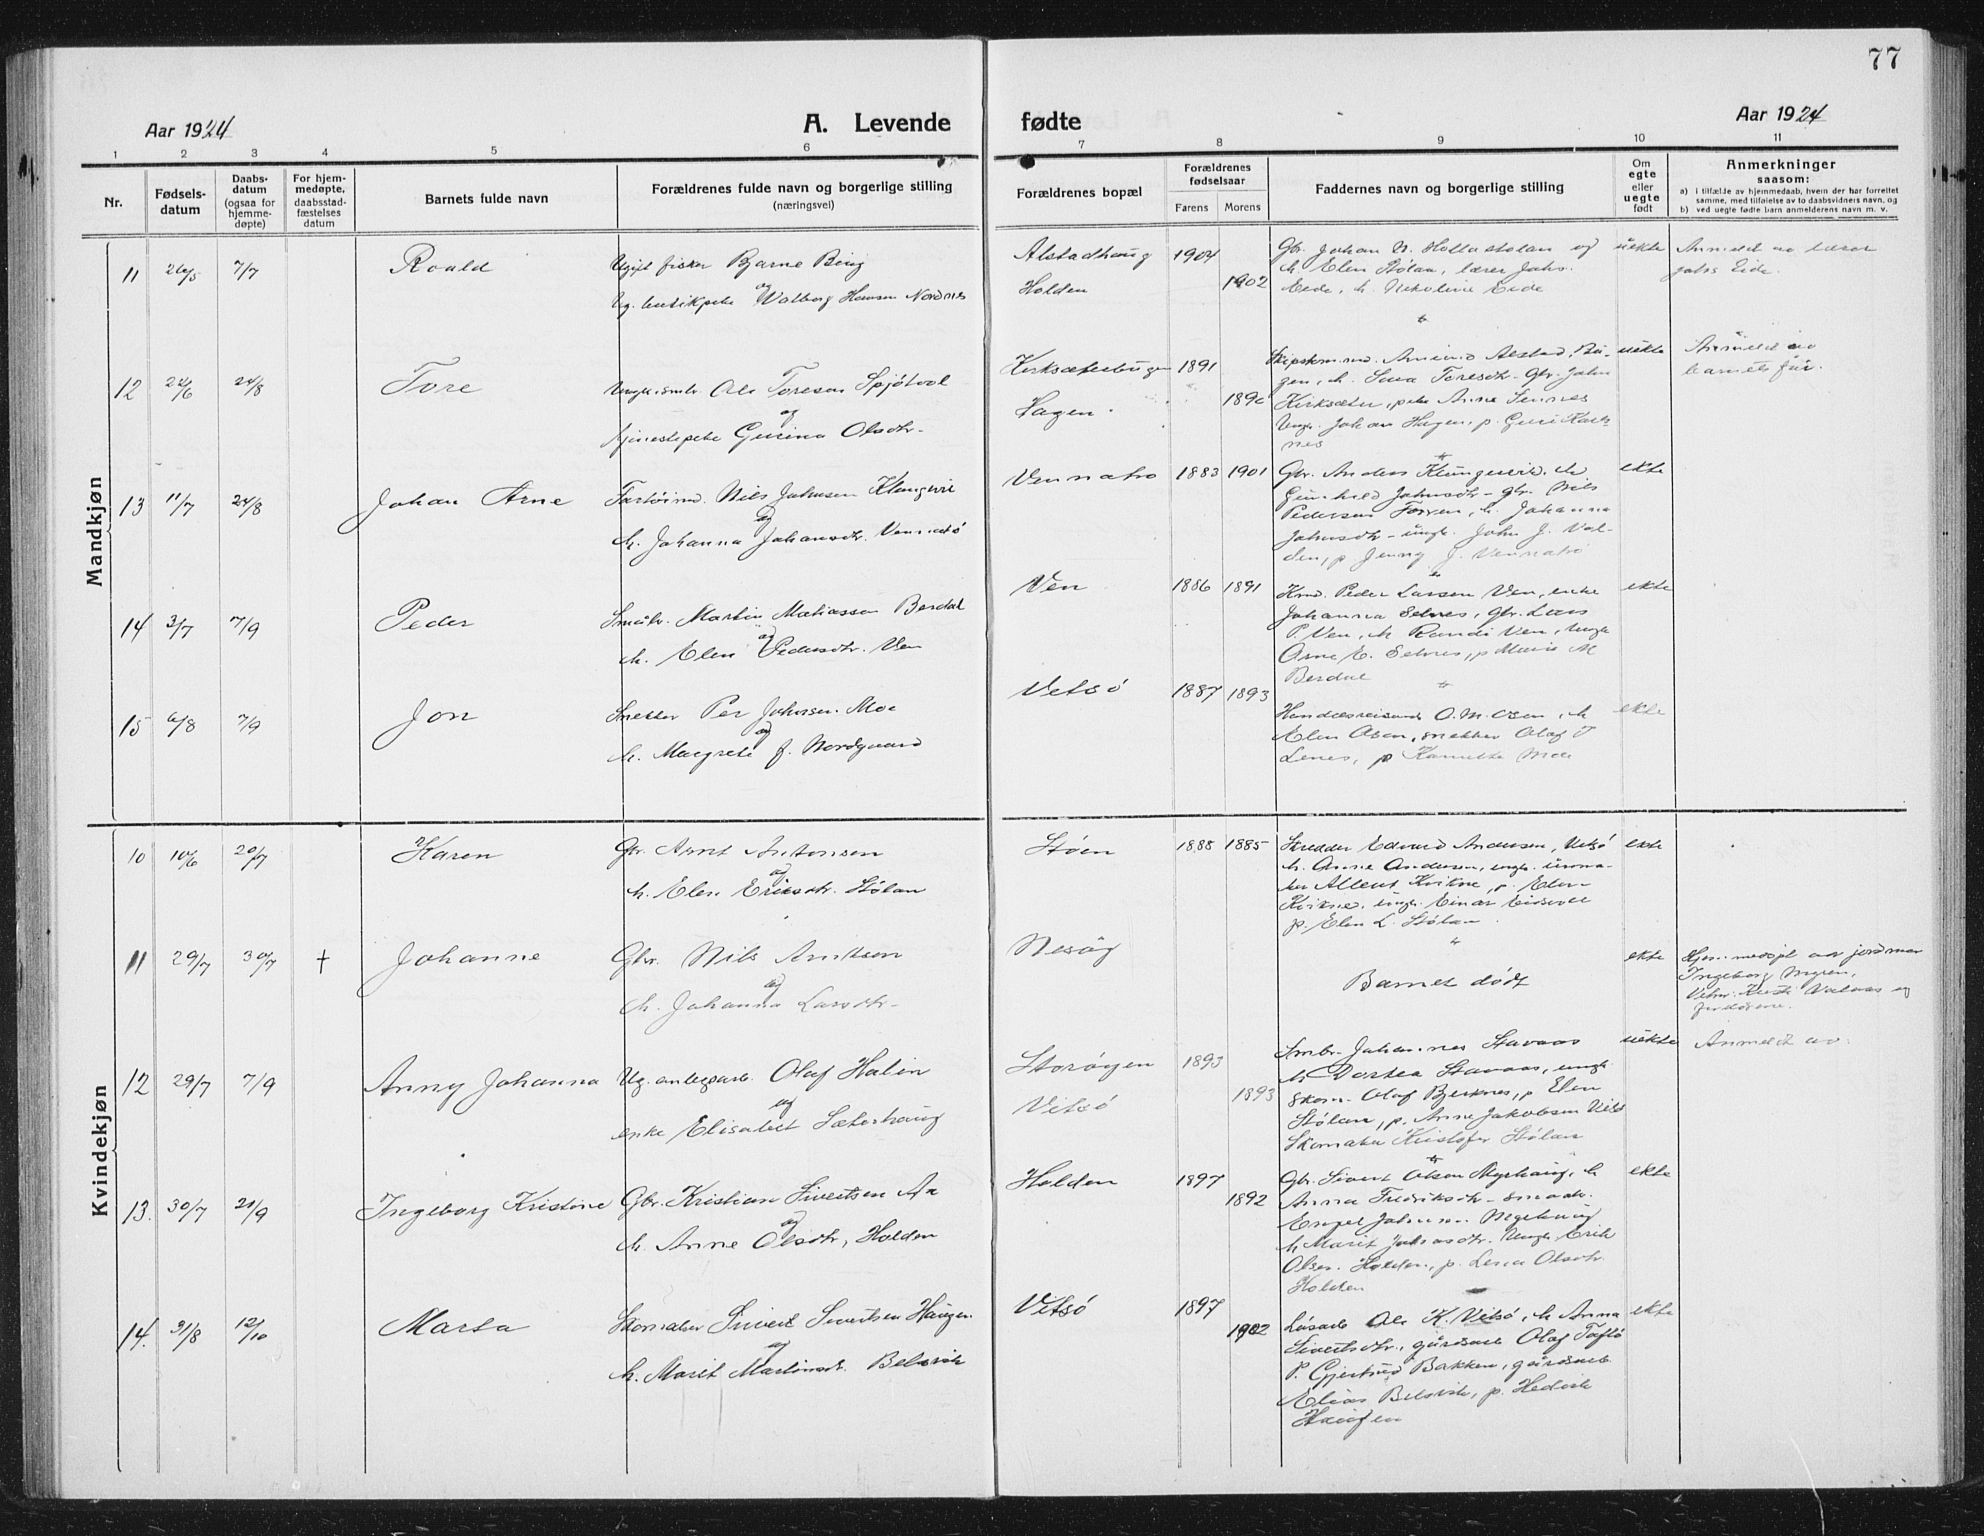 77
Aar 1924
A. Levende fødte
Aar 1924
1 2 3 4 5 6 7 8 9 10 11
Nr.
Fødsels-
datum
Daabs-
datum
(ogsaa for
hjemme-
døpte)
For hjem-
medøpte,
daabsstad-
fæstelses
datum
Barnets fulde navn
Forældrenes fulde navn og borgerlige stilling
(næringsvei)
Forældrenes bopæl
Forældrenes
fødselsaar
Farens
Morens
Faddernes navn og borgerlige stilling
Om
egte
eller
uegte
født
Anmerkninger
saasom:
a) i tilfælde av hjemmedaab, hvem der har forrettet
samme, med tilføielse av to daabsvidners navn, og
b) ved uegte fødte barn anmelderens navn m. v.
Mandkjøn
11 26/5 7/7 Roald
Ugift fisker Bjarne Being
og
Ug. butikpike Valborg Hansen Nordnes
Alstadhaug 1904
Holden 1902
Gbr. Johan N. Hollastølan og
h. Elen Stølan, lærer Johs.
Eide, h. Nikoline Eide
uekte
Anmeldt av lærer
Johs Eide.
12 22/6 24/8 Tore
Ungk. smbr. Ole Toresen Spjøtvol
og
tjenestepike Gurina Olsdtr.
Kirksæterbugen 1891
Hagen
gen, h. Toresdtr. Gbr. John
Kirksæter, pike Anna
Ungk. Johan Hagen, p. Guri
nes
uekte
Anmeldt av
barnets far.
13 11/7 24/8 Johan Arne
Nils Johnsen
og
h. Johanna Johansdtr. Vennatrø
Vennatrø 1883 1901
Gbr. Anders h.
Gunhild Johnsdtr - gbr. Nils
Pedersen h. Johanna
Johnsdtr - ungk. John J.
p. Jenny J. Vennatrø
ekte
14 3/7 7/9 Peder
Småbr. Martin Matiassen Berdal
og
h. Elen Pedersdtr. Ven
Ven 1886 1891
Peder Larsen Ven, enke
Johanna Selnes, Gbr. Lars
P. Ven, h. Randi Ven, Ungk.
Arne E. Selnes, p. Marie M
Berdal
ekte
15 6/8 7/9 Jon
Snekker Per Johnsen Moe
og
h. Margrete f. Nordgaard
Vitsø 1887 1893
Handelsreisende O. M. Osen, h.
Elen Osen, snekker Olaf T
Lenes, p. Moe
ekte
Kvindekjøn
10 10/6 20/7 Karen
Gbr. Arnt Antonsen
og
h. Elen Eriksdtr. Stølan
Støen 1888 1885
Skredder Edvard Andersen, Vitsø
h. Anne Andersen, ungk. urma-
ker Albert Kvikne, p. Elen
Kvikne, ungk. Einar Eidsvoll
p. Elen L. Stølan
ekte
11 29/7 30/7 † Johanne
Gbr. Nils Arntsen
og
h. Johanna Larsdtr.
Nesøg
Barnet dødt
ekte
av jordmor
Ingeborg Myren,
12 29/7 7/9 Anny Johanna
Ug. anlegsarb. Olaf Halin
og
enke Elisabet Sæterhaug
Storøgen 1893
Vitsø 1893
Smbr. Johannes Stavaas
h. Dortea Stavaas, ungk.
skom. Olaf Bjerknes, p. Elen
Stølan, p. Anne Jakobsen
Skomaker Kristofer Stølan
uekte
Anmeldt av
13. 30/7 21/9 Ingeborg Kristine
Gbr. Kristian Sivertsen Aa
og
h. Anne Olsdtr, Holden
Holden 1897
1892
Gbr. Sivert Olsen Myrhaug, h.
Anna Fredriksdtr -
Engel Johnsen
h. Marit Ungk. Erik
Olsen Holden, p. Lena Olsdtr.
Holden
ekte
14. 31/8 12/10 Marta
Skomaker Sivert Sivertsen Haugen
og
h. Marit Martinsdt. Belsvik
Vitsø 1897
1902
Løsarb Ole K. Vitsø, h. Anna
Sivertsdtr., gårdsarb. Olaf Taftø
P. Gjertrud Bakken, gårdsarb.
Elias Belsvik, p. Hedvik
Haugen
ekte